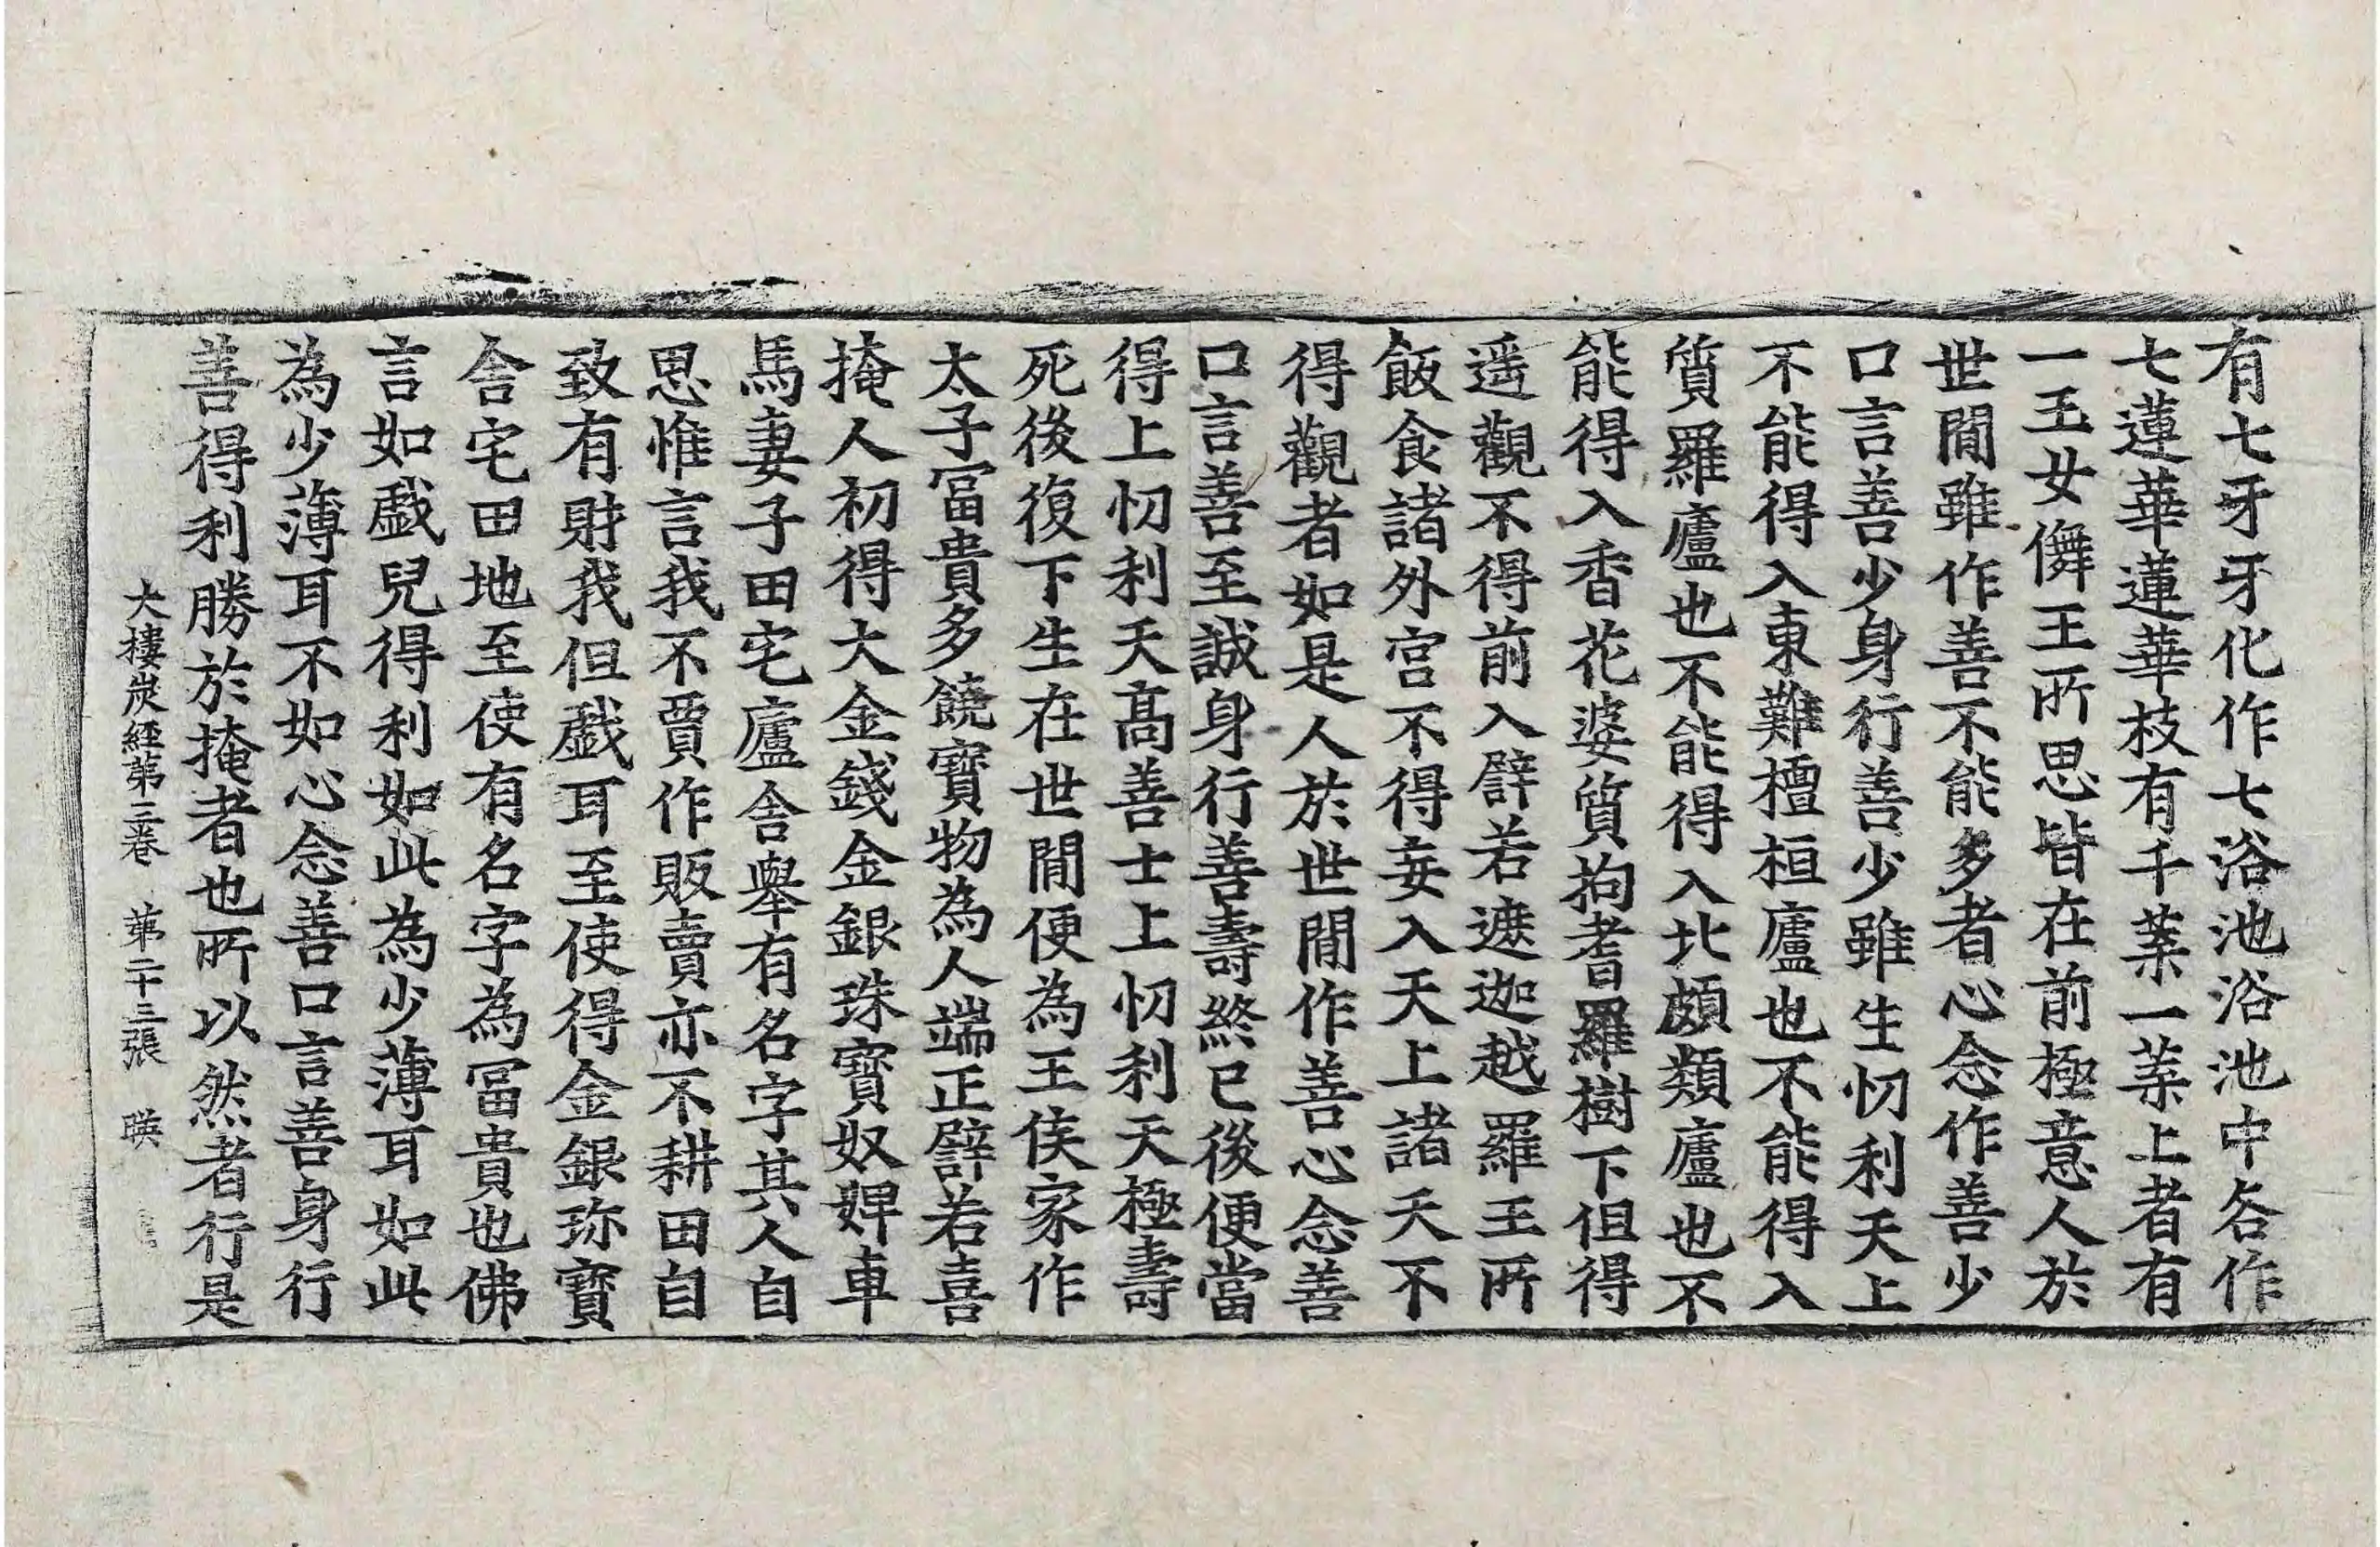 有七牙牙化作七浴池浴池中各作
七蓮華蓮華枝有千葉一葉上者有
一玉女儛王所思皆在前極意人於
世閒雖作善不能多者心念作善少
口言善少身行善少雖生忉利天上
不能得入東難檀桓廬也不能得入
質羅廬也不能得入北頗類廬也不
能得入香花婆質拘耆羅樹下但得
遥觀不得前入譬若遮迦越羅王所
飯食諸外宮不得妄入天上諸天不
得觀者如是人於世閒作善心念善
口言善至誠身行善壽終已後便當
得上忉利天高善士上忉利天極壽
死後復下生在世閒便為王侯家作
太子冨貴多饒寶物為人端正譬若喜
掩人初得大金錢金銀珠寶奴婢車
馬妻子田宅廬舍舉有名字其人自
思惟言我不賈作販賣亦不耕田自
致有財我但戱耳至使得金銀珎寶
舍宅田地至使有名字為冨貴也佛
言如戱兒得利如此為少薄耳如此
為少薄耳不如心念善口言善身行
善得利勝於掩者也所以然者行是
大樓炭經第三卷 第二十三張 暎